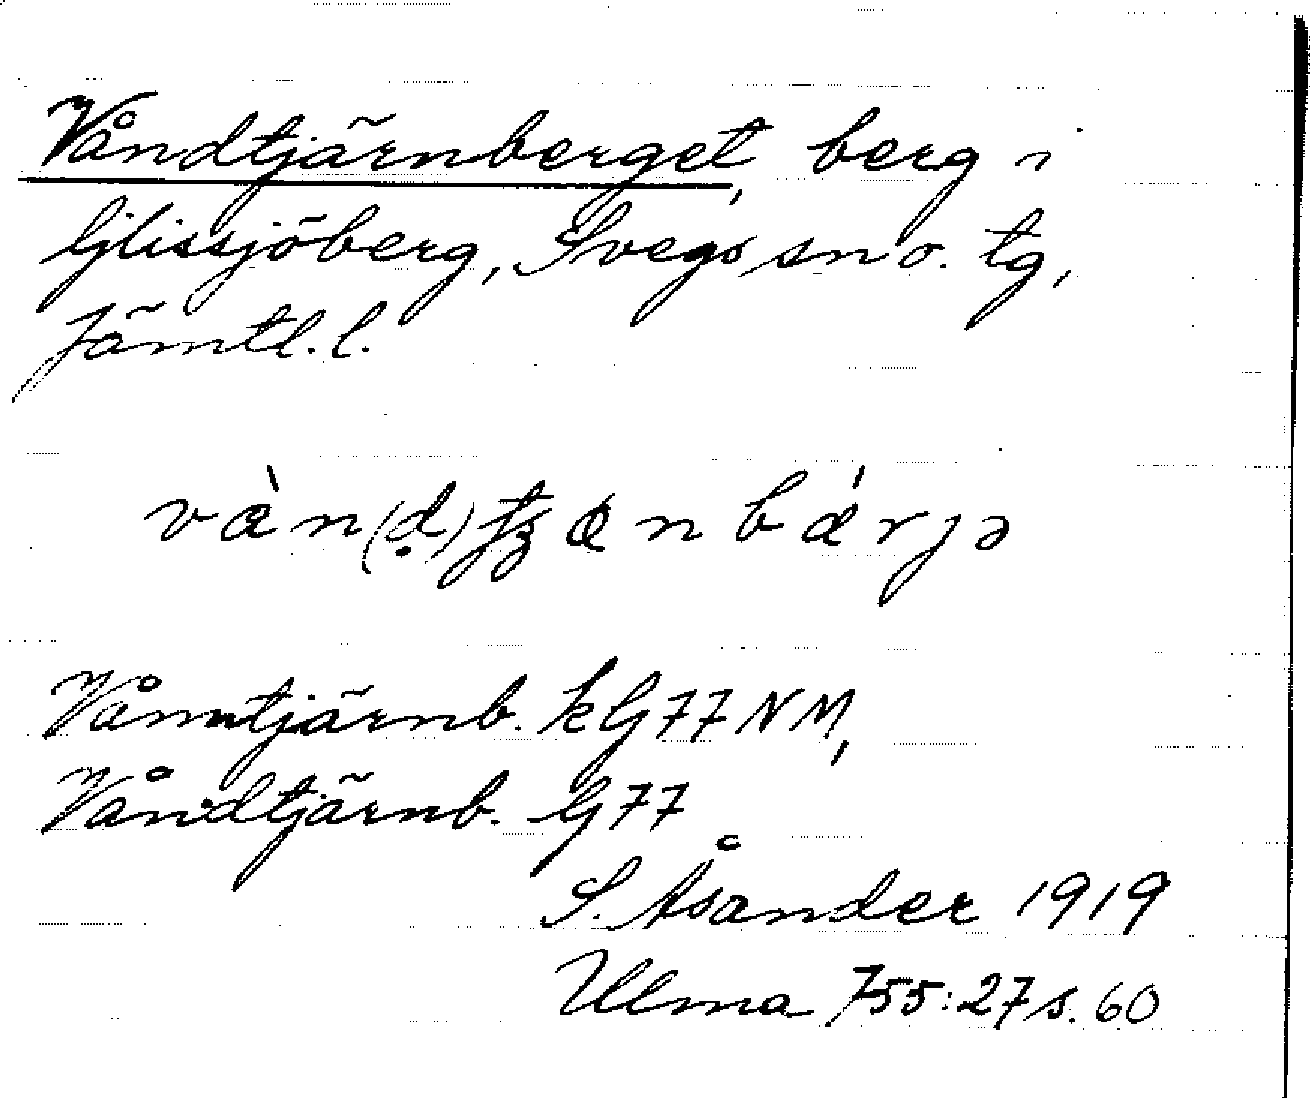 Våndtjärnberget, berg i
Glissjöberg, Svegs sn o. tg,
Jämtl. l.
vàn(d)tʒænbǽrjə
Våmtjärnb. kG77NM,
Våndtjärnb. G77
S. Åsander 1919
Ulma 755:27 s. 60